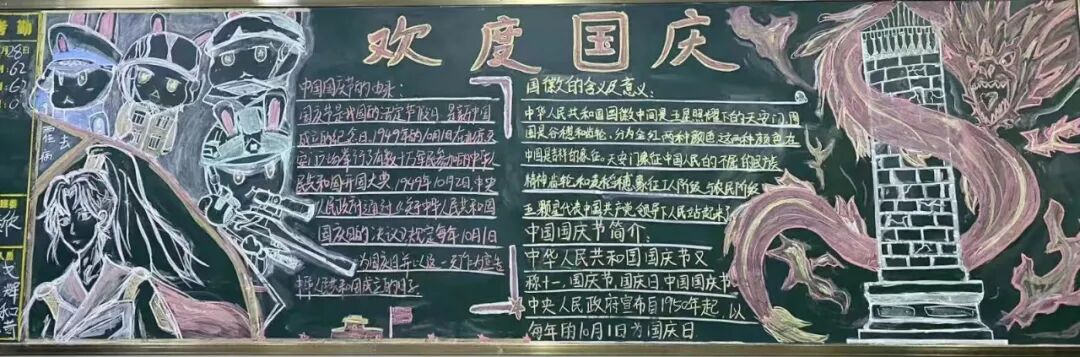 欢度国庆
考勤
月28日
62
62
0
霍去病
中国国庆节的由来:
国庆节是我国的法定节假日,是新中国
成立的纪念日,1949年的10月1日在北京天
安门广场举行了有数十万军民参加的中华人
民共和国开国大典,1949年10月2日,中央
人民政府通过《关于中华人民共和国
国庆日的决议》规定每年10月1日
为国庆日并以这一天作为宣告
中华人民共和国成立的日子
国徽的含义及意义:
中华人民共和国国徽中间是五星照耀下的天安门,周
围是谷穗和齿轮,分为金红两种颜色这两种颜色在
中国是吉祥的象征。天安门象征中国人民的不屈的
精神齿轮和麦稻穗象征工人阶级与农民阶级
五颗星代表中国共产党领导下人民站起来了
中国国庆节简介:
中华人民共和国国庆节又
称十一、国庆节、国庆日、中国国庆节
中央人民政府宣布自1950年起,以
每年的10月1日为国庆日